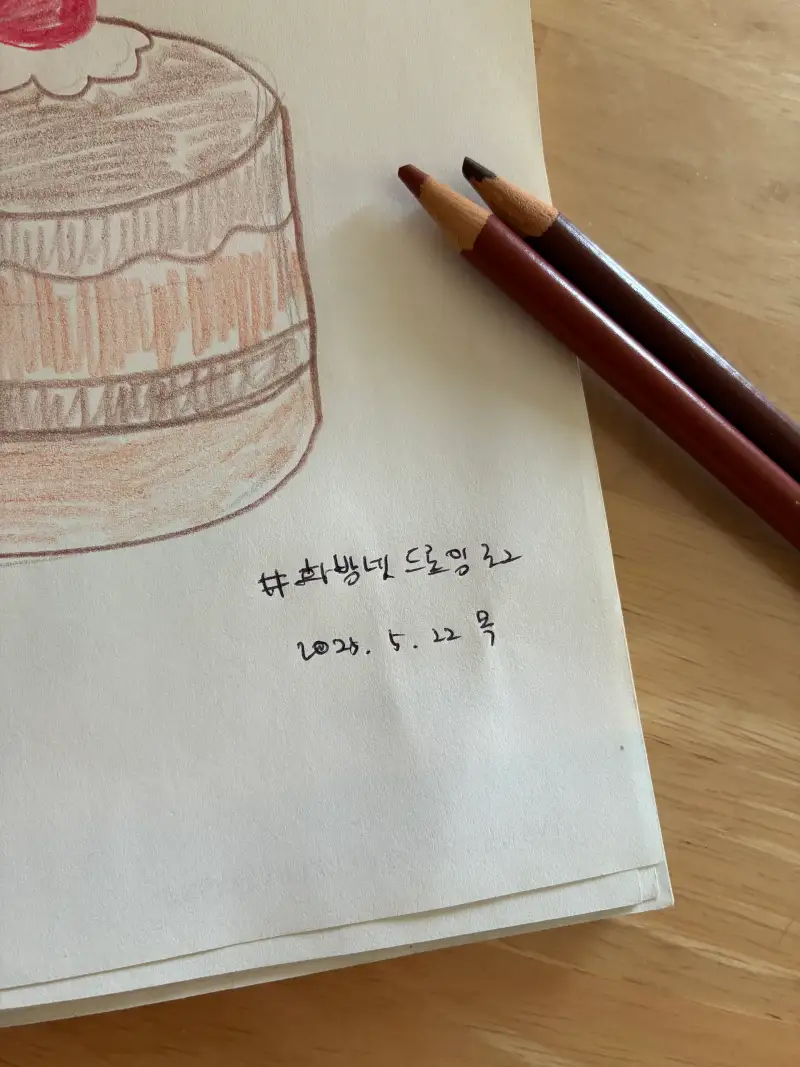 #화방넷 드로잉 로그
2025. 5. 22 목